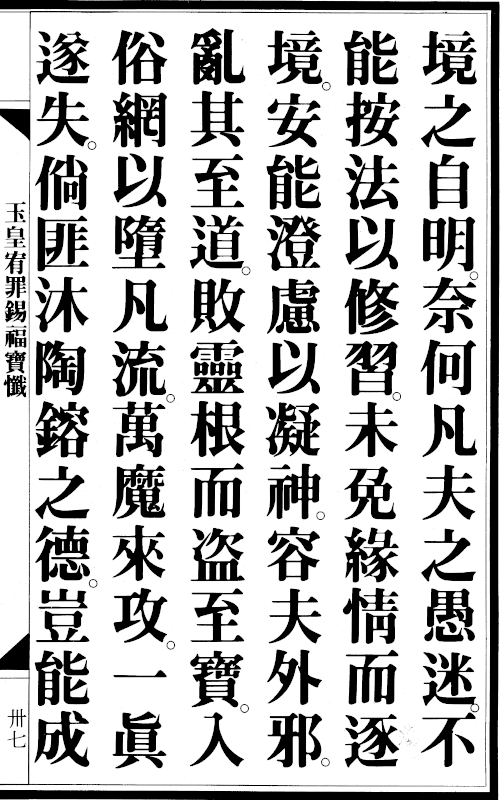 境之自明。奈何凡夫之愚迷。不
能按法以修習。未免緣情而逐
境。安能澄慮以凝神。容夫外邪。
亂其至道。敗靈根而盗至寶。入
俗網以墮凡流。萬魔來攻。一眞
遂失。倘匪沐陶鎔之德。豈能成
玉皇宥罪錫福寶懺
卅七